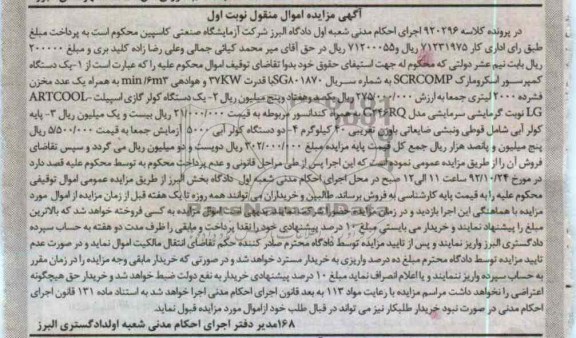 آگهی مزایده اموال منقول نوبت اول
در پرونده کلاسه ۹۲۰۲۹۶ اجرای احکام مدنی شعبه اول دادگاه البرز شرکت آزمایشگاه صنعتی کاسپین محکوم است به پرداخت مبلغ
طبق رای اداری کار ۷۱۲۳۱۹۷۵ ریال و۷۱۲۰۰۰۵۵ ریال در حق آقای میر محمد کیائی جمالی وعلی رضا زاده کلید بری و مبلغ ۲۰۰۰۰۰
ریال بابت نیم عشر دولتی که محکوم له جهت استیفای حقوق خود بدوا تقاضای توقیف اموال محکوم علیه را که عبارت است از ۱-یک دستگاه
کمپرسور اسکرومارک SCRCOMP به شماره سریال SG۸۰۱۸۷۰با قدرت ۳۷KW و هوادهی min/۶m۳ به همراه یک عدد مخزن
فشرده ۲۰۰۰ لیتری جمعا به ارزش ۲۷۵/۰۰۰/۰۰۰ ریال دویست وهفتاد وپنج میلیون ریال ۲- یک دستگاه کولر گازی اسپیلت ARTCOOL-
LG نوبت گرمایشی سرمایشی مدل RQ به همراه کندانسور مربوطه به قیمت ۲۱/۰۰۰/۰۰۰ ریال بیست و یک میلیون ریال ۳- پایه
کولر آبی شامل قوطی ونبشی ضایعاتی باوزن تقریبی ۴۰ کیلوگرم ۴- دو دستگاه کولر آبی ۵۰۰۰ آزمایش جمعا به قیمت ۵/۵۰۰/۰۰۰ ریال
پنج میلیون و پانصد هزار ریال جمع کل قیمت پایه مزایده مبلغ ۳۰۲/۰۰۰/۰۰۰ ریال دویست و دو میلیون ریال می گردد و سپس تقاضای
فروش آن را از طریق مزایده عمومی نموده است که این اجرا پس از طی مراحل قانونی و عدم پرداخت محکوم به توسط محکوم علیه قصد دارد
در مورخ ۹۲/۱۰/۲۴ ساعت ۱۱ الی۱۲ صبح در محل اجرای احکام مدنی شعبه اول دادگاه بخش البرز از طریق مزایده عمومی اموال توقیفی
محکوم علیه رابه قیمت پایه کارشناسی به فروش برساند. طالبین و خریداران می توانند همه روزه تا یک هفته قبل از زمان مزایده از اموال مورد
مزایده با هماهنگی این اجرا بازدید و در زمان مزایده شرکت نمایند اموال مورد مزایده به کسی فروخته خواهد شد که بالاترین
مبلغ را پیشنهاد نمایند و خریدار می بایستی مبلغ ۱۰ درصد پیشنهادی خود را نقدا پرداخت و مابقی را ظرف مدت دو هفته به حساب سپرده
دادگستری البرز واریز نمایند و پس از تایید مزایده توسط دادگاه محترم صادر کننده حکم تقاضای انتقال مالکیت اموال نماید و در صورت عدم
تایید مزایده توسط دادگاه محترم مبلغ ده درصد واریزی به خریدار مسترد خواهد شد و در صورتی که خریدار مابقی وجه مزایده را در زمان مقرر
به حساب سپرده واریز ننمایند و یا اعلام انصراف نماید مبلغ ۱۰ درصد پیشنهادی خریدار به نفع دولت ضبط خواهد شد و خریدار حق هیچگونه
اعتراضی را نخواهد داشت مراسم مزایده با رعایت مواد ۱۱۳ به بعد قانون اجرای احکام مدنی اجرا خواهد شد به استناد ماده ۱۳۱ قانون اجرای
احکام مدنی در صورت نبود خریدار طلبکار نیز می تواند در قبال طلب خود ازاموال مورد مزایده قبول نماید.
۱۶۸مدیر دفتر اجرای احکام مدنی شعبه اولدادگستری البرز